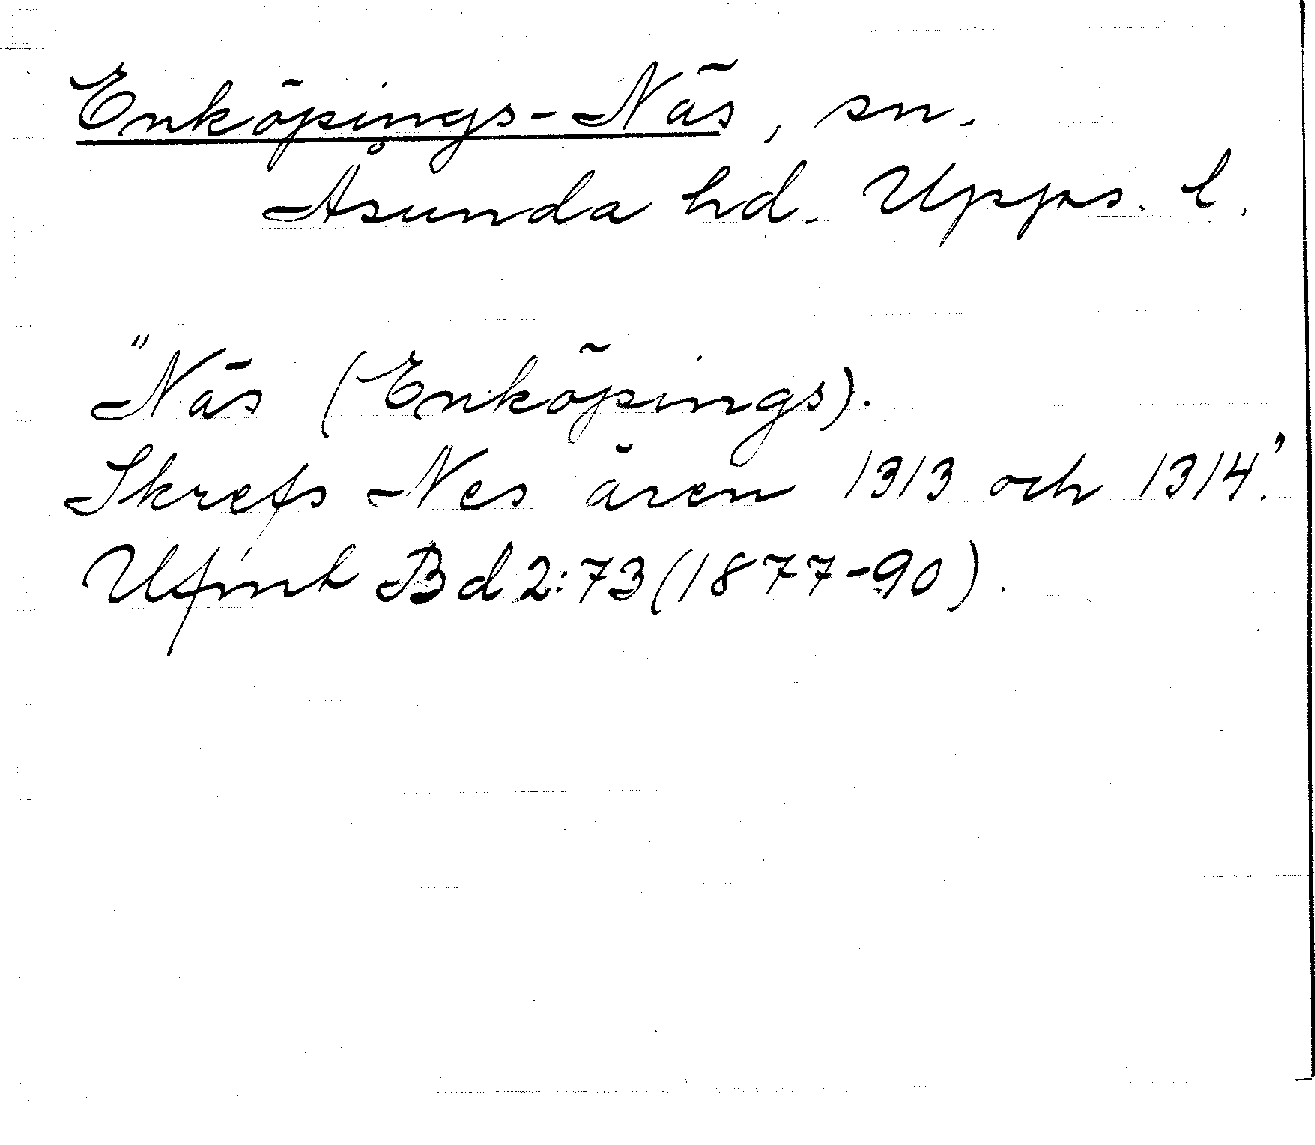 Enköpings-Näs, sn.
Åsunda hd. Upps. l.
"Näs (Enköpings).
Skrefs Nes åren 1313 och 1314."
Ufmt Bd 2:73 (1877-90).